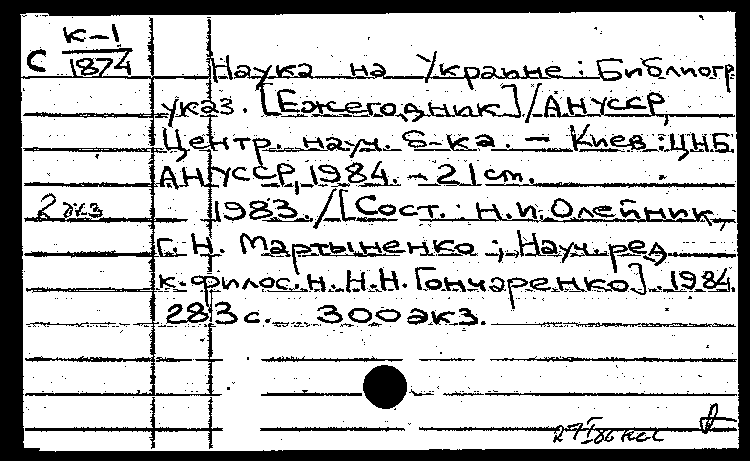 С К-1
1874
Наука на Украине: Библиогр.
указ. [Ежегодник]/АНУССР,
Центр. науч. б-ка. – Киев: ЦНБ
АНУССР, 1984. – 21 cm.
2 экз 1983./[Сост.: Н.И. Олейник,
Г.Н. Мартыненко; Науч. ред.
к. филос. н. Н.Н. Гончаренко] 1984.
283 с. 300 экз.
27 I 86